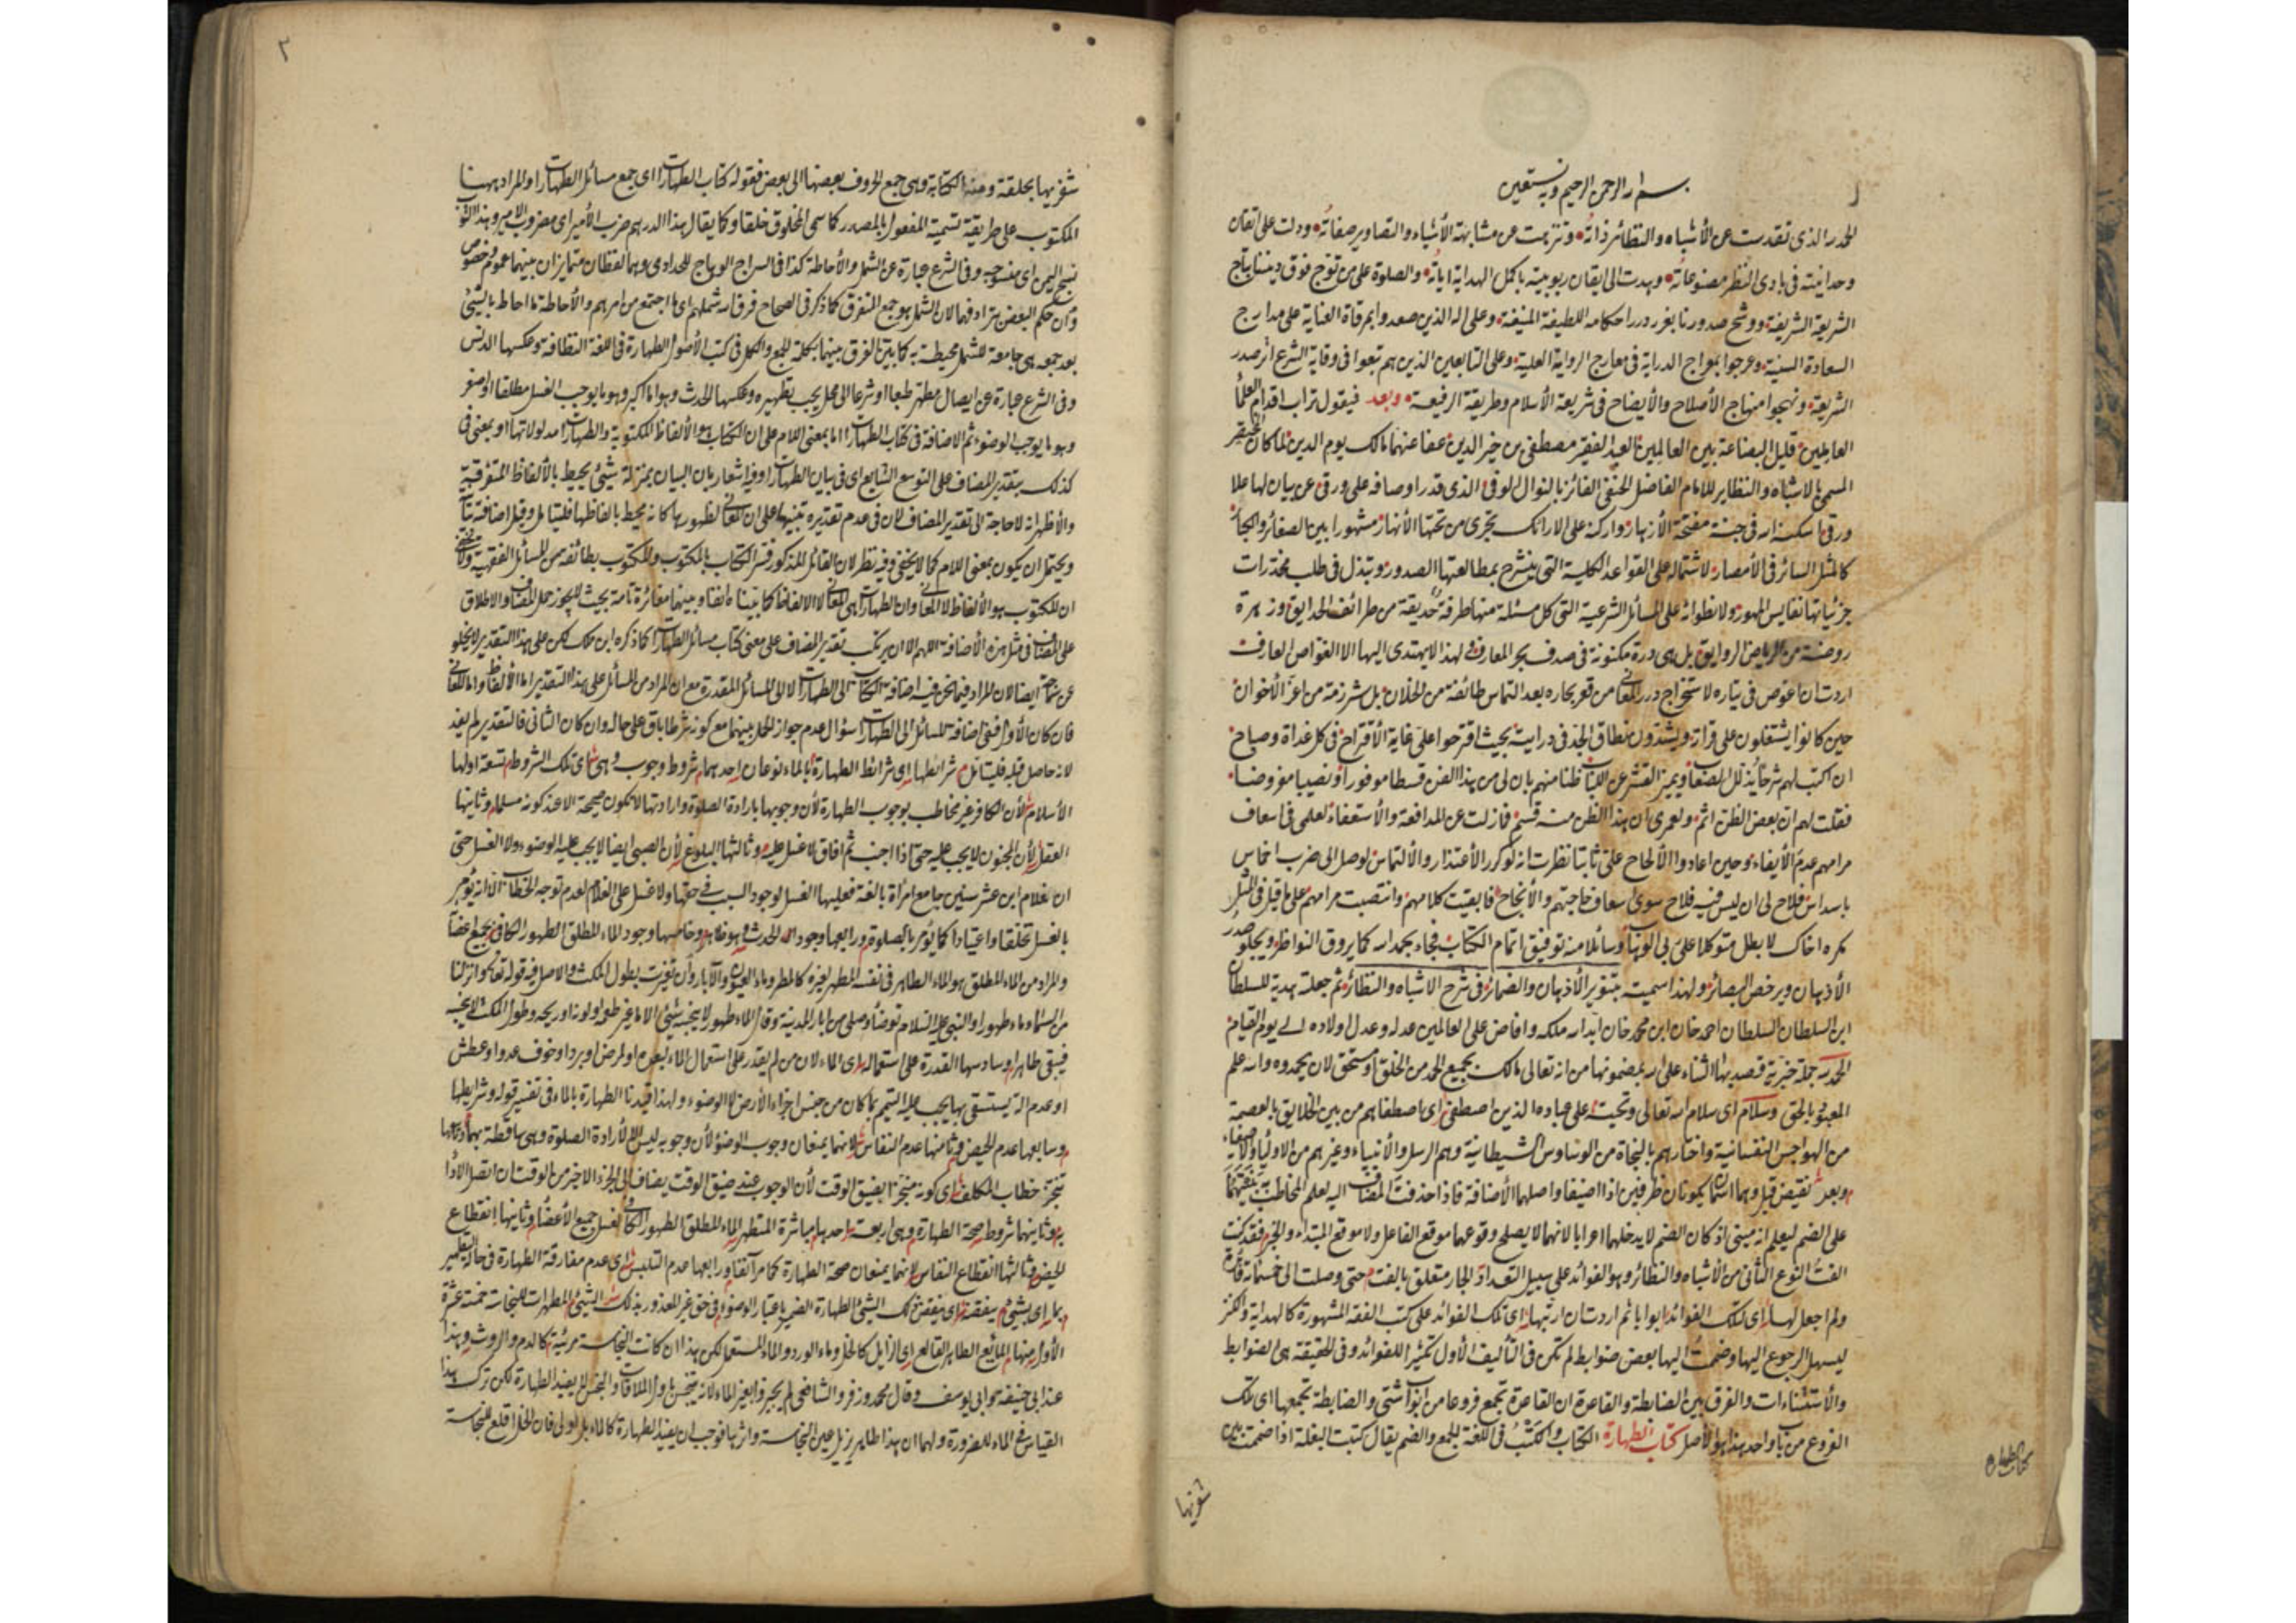 بسم الله الرحمن الرحيم وبه نستعين
الحمد لله الذى تقدست عن الأشباه والنظائر ذاته وتنزهت عن مشابهة الأشياء والتصاوير صفاته ودلت على اتقان
وحدانيته فى بادى النظر مصنوعاته وهدت الى ايقان ربوبيته باكمل الهداية اياته والصلوة على من توج فوق ديننا بتاج
الشريعة الشريفة ووشح صدورنا بغرر درر احكامه اللطيفة المنيفة وعلى اله الذين صعدوا بمرقاة العناية على مدارج
السعادة السنية وعرجوا بمعراج الدراية فى معارج الرواية العلية وعلى التابعين الذين هم تبعوا فى وقاية الشرع اثر صدر
الشريعة ونهجوا منهاج الأصلاح والأيضاح فى شريعة الأسلام وطريقة الرفيعة وبعد فيقول تراب اقدام العلماء
العاملين قليل البضاعة بين العالمين العبد الفقير مصطفى بن خير الدين عفا عنهما مالك يوم الدين لما كان
المسمى بالاشباه والنظاير للامام الفاضل الحنفى الفائز بالنوال لوفى الذى قدر اوصافه على ورق عن بيان لها علا
ورقى اسكنه الله فى جنة مفتحة الأزهار واركنه على الارائك تجرى من تحتها الأنهار مشهورا بين الصغائر والكبائر
كالمثل السائر فى الأمصار لاشتماله على القواعد الكلية التى ينشرح بمطالعتها الصدور وتبذل فى طلب مخدرات
جزئياتها نفايس المهور ولانطوائه على المسائل الشرعية التى كل مسئلة منها طرفة حديقة من طرائف الحدايق وزهرة
روضة من الرياض الروايق بل هى درة مكنونة فى صدف بحر المعارف لهذا لا يهتدى اليها الا الغواص العارف
اردت ان اغوص فى تياره لاستخراج درر المعانى من قعر بحاره بعد التماس طائفة من الخلان بل شرذمة من اعز الأخوان
حين كانوا يشتغلون على قرائه ويشدون نطاق الجد فى درايته بحيث اقترحوا على غاية الأقتراح فى كل غداة وصباح
ان اكتب لهم شرحا يذلل الصعاب ويميز القشر عن اللباب ظنا منهم بان لى من هذا الفن قسطا موفورا ونصيبا مفروضا
فقلت لهم ان بعض الظن اثم ولعمرى ان هذا الظن منه قسم فما زلت عن المدافعة والأستعفاء لعلمى فى اسعاف
مرامهم عدم الأيفاء وحين اعادوا الألحاح على ثابتا نظرت انه لو كرر الأعتذار والألتماس لوصل الى ضرب اخماس
باسداس فلاح لى ان ليس فيه فلاح سوى اسعاف حاجتهم والأنجاح فابقيت كلامهم وانتصبت مرامهم على ما قيل فى المثل
مكره اخاك لا بطل متوكلا على ربى الوهاب وسائلا منه توفيق اتمام الكتاب فجاء بحمد الله كما يروق النواظر ويجلو صدر
الأذهان ويرخص البصائر ولهذا سميته بتنوير الأذهان والضمائر فى شرح الاشباه والنظائر ثم جعلته هدية للسلطان
ابن السلطان السلطان احمد خان ابن محمد خان ابد الله ملكه وافاض على العالمين عدله وعدل اولاده الى يوم القيام
الحمد لله جملة خبرية قصد بها الثناء على الله بمضمونها من انه تعالى مالك بجميع الحمد من الخلق او مستحق لان يحمدوه والله علم
المعبود بالحق وسلام اى سلام الله تعالى وتحيته على عباده الذين اصطفى اى اصطفاهم من بين الخلايق بالعصمة
من الهواجس النفسانية واختارهم بالنجاة من الوساوس الشيطانية وهم الرسل والأنبياء وغيرهم من الاولياء والاصفياء
وبعد نقيض قبل وهما اسمان يكونان ظرفين اذا اضيفا واصلهما الأضافة فاذا حذفت المضاف اليه لعلم المخاطب
على الضم ليعلم انه مبنى اذ كان الضم لا يدخلهما اعرابا لانهما لا يصلح وقوعهما موقع الفاعل ولا موقع المبتداء والخبر فقد كنت
الفت النوع الثانى من الأشباه والنظائر وهو الفوائد على سبيل التعداد الجار متعلق بالفت حتى وصلت الى خمسمائة فائدة
ولم اجعل لها اى لتلك الفوائد ابوابا ثم اردت ان ارتبها اى تلك الفوائد على كتب الفقه المشهورة كالهداية والكنز
ليسهل الرجوع اليها وضمت اليها بعض ضوابط لم تكن فى التأليف الأول تكثيرا للفوائد وفى الحقيقة هى الضوابط
والأستثناءات والفرق بين الضابطة والقاعدة ان القاعدة تجمع فروعا من ابواب شتى والضابطة تجمعها اى تلك
الفروع من باب واحد هذا هو الأصل كتاب الطهارة الكتاب والكتب فى اللغة الجمع والضم يقال كتبت البغلة اذا ضمت بين
شفريها
كتاب الطهارة
٢
شفريها بحلقة ومنه الكتابة وهى جمع الحروف بعضها الى بعض فقوله كتاب الطهارات اى جمع مسائل الطهارات والمراد ههنا
المكتوب على طريقة تسمية المفعول بالمصدر كما سمى المخلوق خلقا وكما يقال هذا الدرهم ضرب الأمير اى مضروب الامير وهذا الثوب
نسج اليمن اى منسوجه وفى الشرع عبارة عن الشمل والأحاطة كذا فى السراج الوهاج للحدادى وهما لفظان متمايزان بينهما عموم وخصوص
وان حكم البعض بترادفهما لان الشمل هو جمع المتفرق كما ذكر فى الصحاح فرق الله شملهم اى ما اجتمع من امرهم والأحاطة ما احاط بالشئ
بعد جمعه هى جامعة للشمل محيطة به كما بين الفرق بينهما بكلمة الجمع والكل فى كتب الأصول الطهارة فى اللغة النظافة وعكسها الدنس
وفى الشرع عبارة عن ايصال مطهر طبعا او شرعا الى محل يجب تطهيره وعكسها الحدث وهو اما اكبر وهو ما يوجب الغسل مطلقا او اصغر
وهو ما يوجب الوضوء ثم الاضافة فى كتاب الطهارات اما بمعنى اللام على ان الكتاب هو الألفاظ المكتوبة والطهارات مدلولاتها او بمعنى فى
كذلك بتقدير المضاف على التوسع الشايع اى فى بيان الطهارات وفيه اشعار بان البيان بمنزلة شئ يحيط بالألفاظ المتفرقة
والأظهر انه لا حاجة الى تقدير المضاف لان فى عدم تقديره تنبيها على ان المعانى لظهورها كانه محيط بالفاظها فليتامل وقيل اضافته
ويحتمل ان يكون بمعنى اللام كما لا يخفى وفيه نظر لان القائل المذكور فسر الكتاب بالمكتوب والمكتوب بطائفة من المسائل الفقهية
ان المكتوب هو الألفاظ لا المعانى وان الطهارات هى المعانى لا الالفاظ كما بيناه انفا وبينهما مغائرة تامة بحيث لا يجوز حمل المضاف والاطلاق
على المضاف فى مثل هذه الأضافة اللهم الا ان يرتكب تقدير المضاف على معنى كتاب مسائل الطهارات كما ذكره ابن ملك لكن على هذا التقدير لا يخلو
ايضا لان المراد فيما نحن فيه اضافة الكتاب الى الطهارات لا الى المسائل المقدرة مع ان المراد من المسائل على هذا التقدير اما الألفاظ واما المعانى
فان كان الأول ففى اضافة المسائل الى الطهارات سؤال عدم جواز الحمل بينهما مع كونه شرطا باق على حاله وان كان الثانى فالتقدير لم يفد
لانه حاصل قبله فليتامل شرائطها اى شرائط الطهارة بالماء نوعان احدهما شروط وجوب وهى اى تلك الشروط تسعة اولها
الأسلام لأن الكافر غير مخاطب بوجوب الطهارة لأن وجوبها بارادة الصلوة وارادتها لا تكون صحيحة الا عند كونه مسلما وثانيها
العقل لأن المجنون لا يجب عليه حتى اذا اجنب ثم افاق لا غسل عليه وثالثها البلوغ لأن الصبى ايضا لا يجب عليه الوضوء ولا الغسل حتى
ان غلام ابن عشر سنين جامع امرأة بالغة فعليها الغسل لوجود السبب فى حقها ولا غسل على الغلام لعدم توجه الخطاب الا انه يؤمر
بالغسل تخلقا واعتيادا كما يؤمر بالصلوة ورابعها وجود الحدث وهو ظاهر وخامسها وجود الماء المطلق الطهور الكافى لجميع اعضائه
والمراد من الماء المطلق هو الماء الطاهر فى نفسه المطهر لغيره كالمطر وماء العيون والآبار وان تغيرت بطول المكث والاصل فيه قوله تعالى وانزلنا
من السماء ماء طهورا والنبى عليه السلام توضأ وصلى من ابار المدينة وقال الماء طهور لا ينجسه شئ الا ما غير طعمه او لونه او ريحه وطول المكث لا ينجسه
فيبقى طاهرا وسادسها القدرة على استعماله اى الماء لان من لم يقدر على استعمال الماء لبعده او لمرض او برد او خوف عدو او عطش
او عدم الة يستسقى بها يجب عليه التيمم بما كان من جنس اجزاء الأرض لا الوضوء ولهذا قيدنا الطهارة بالماء فى تفسير قوله وشرايطها
وسابعها عدم الحيض وثامنها عدم النفاس لانهما يمنعان وجوب الوضوء لأن وجوبه ليس الا لأرادة الصلوة وهى ساقطة بهما وتاسعها
تنجز خطاب المكلف اى كونه منجزا بضيق الوقت لأن الوجوب عند ضيق الوقت يضاف الى الجزء الاخير من الوقت ان اتصل الأداء
به وثانيهما شروط صحة الطهارة وهى اربعة احدها مباشرة المتطهر الماء المطلق الطهور الكافى لغسل جميع الأعضاء وثانيها انقطاع
الحيض وثالثها انقطاع النفاس لانهما يمنعان صحة الطهارة كما مر آنفا ورابعها عدم التلبس اى عدم مفارقة الطهارة فى حالة التطهير
بما اى بشئ ينقضه اى ينقض ذلك الشئ الطهارة الضمير باعتبار الوضوء فى حق غير المعذور بذلك الشئ المطهرات للنجاسة خمسة عشرة
الأول منها المائع الطاهر القالع اى الزايل كالخل وماء الورد والماء المستعمل لكن هذا ان كانت النجاسة مرئية كالدم والروث وهذا
عند ابى حنيفة وابى يوسف وقال محمد وزفر والشافعى لم يجز بغير الماء لانه يتنجس باول الملاقات والنجس لا يفيد الطهارة لكن ترك هذا
القياس فى الماء للضرورة ولهما ان هذا طاهر يزيل عين النجاسة واثرها فوجب ان يفيد الطهارة كالماء بل اولى فان الخل اقلع للنجاسة